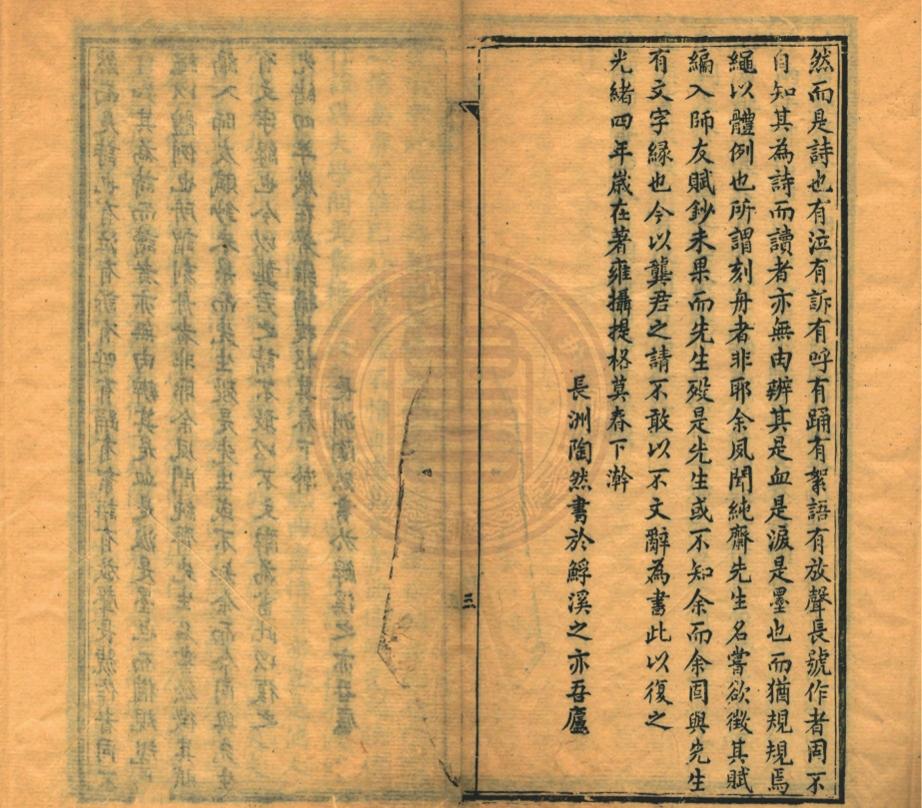 然而是詩也有泣有訴有呼有踊有絮語有放聲長號作者固不
自知其為詩而讀者亦無由辨其是血是淚是墨也而猶規規焉
繩以體例也所謂刻舟者非耶余夙聞純齋先生名嘗欲徵其賦
編入師友賦鈔未果而先生歿是先生或不知余而余固與先生
有文字緣也今以龔君之請不敢以不文辭為書此以復之
光緒四年嵗在著雍攝提格莫春下澣
長洲陶然書於鰕溪之亦吾廬
三